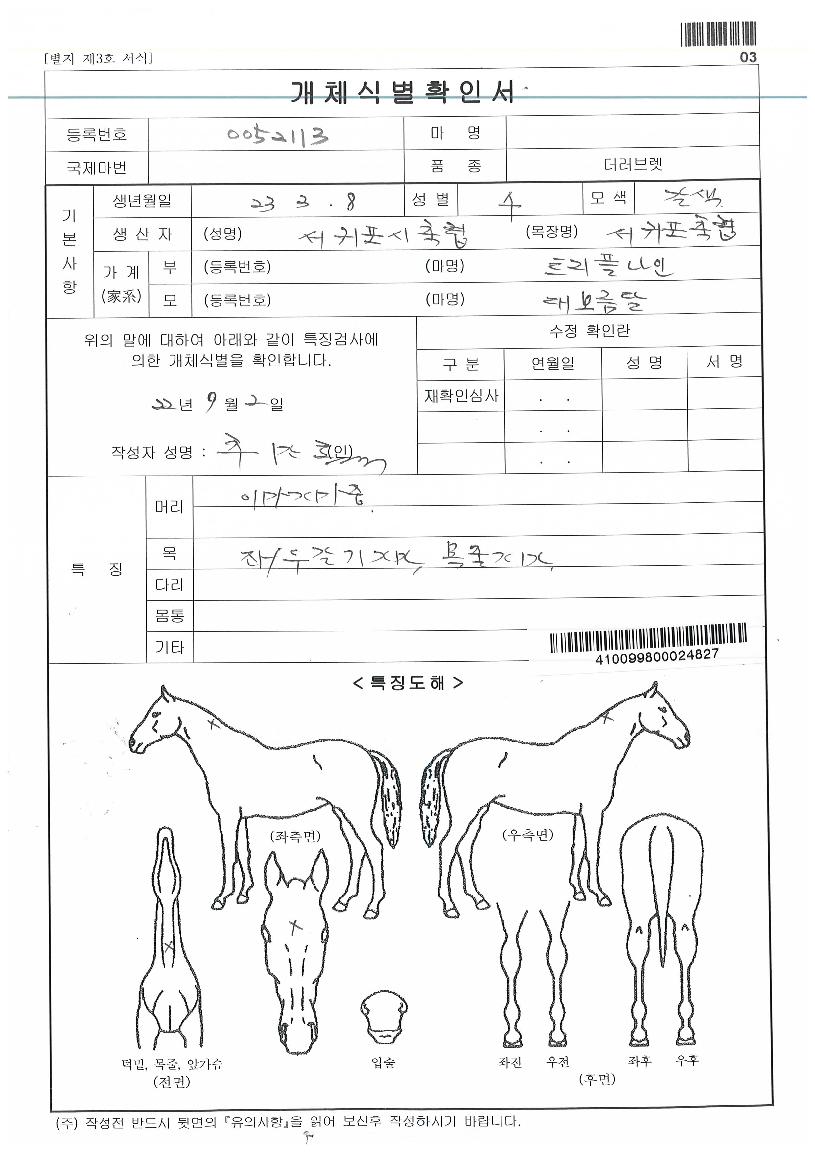 [별지 제3호 서식]
03
개체식별확인서
등록번호 0052113 마 명
국제마번 품 종 더러브렛
기본사항
생년월일 23 3 . 8 성 별 수 모 색 갈색
생 산 자 (성명) 서귀포시축협 (목장명) 서귀포축협
가 계 (家系) 부 (등록번호) (마명) 트리플나인
모 (등록번호) (마명) 대보름달
위의 말에 대하여 아래와 같이 특징검사에
의한 개체식별을 확인합니다.
년 9 월 2 일
작성자 성명 : (인)
수정 확인란
구 분 연월일 성 명 서 명
재확인심사 . .
. .
. .
특 징
머리 이마가마중
목 좌/우갈기가마, 목줄가마,
다리
몸통
기타
410099800024827
< 특징도해 >
(좌측면) (우측면)
턱밑, 목줄, 앞가슴 입술 좌전 우전 좌후 우후
(전권) (후면)
(주) 작성전 반드시 뒷면의 『유의사항』을 읽어 보신후 작성하시기 바랍니다.